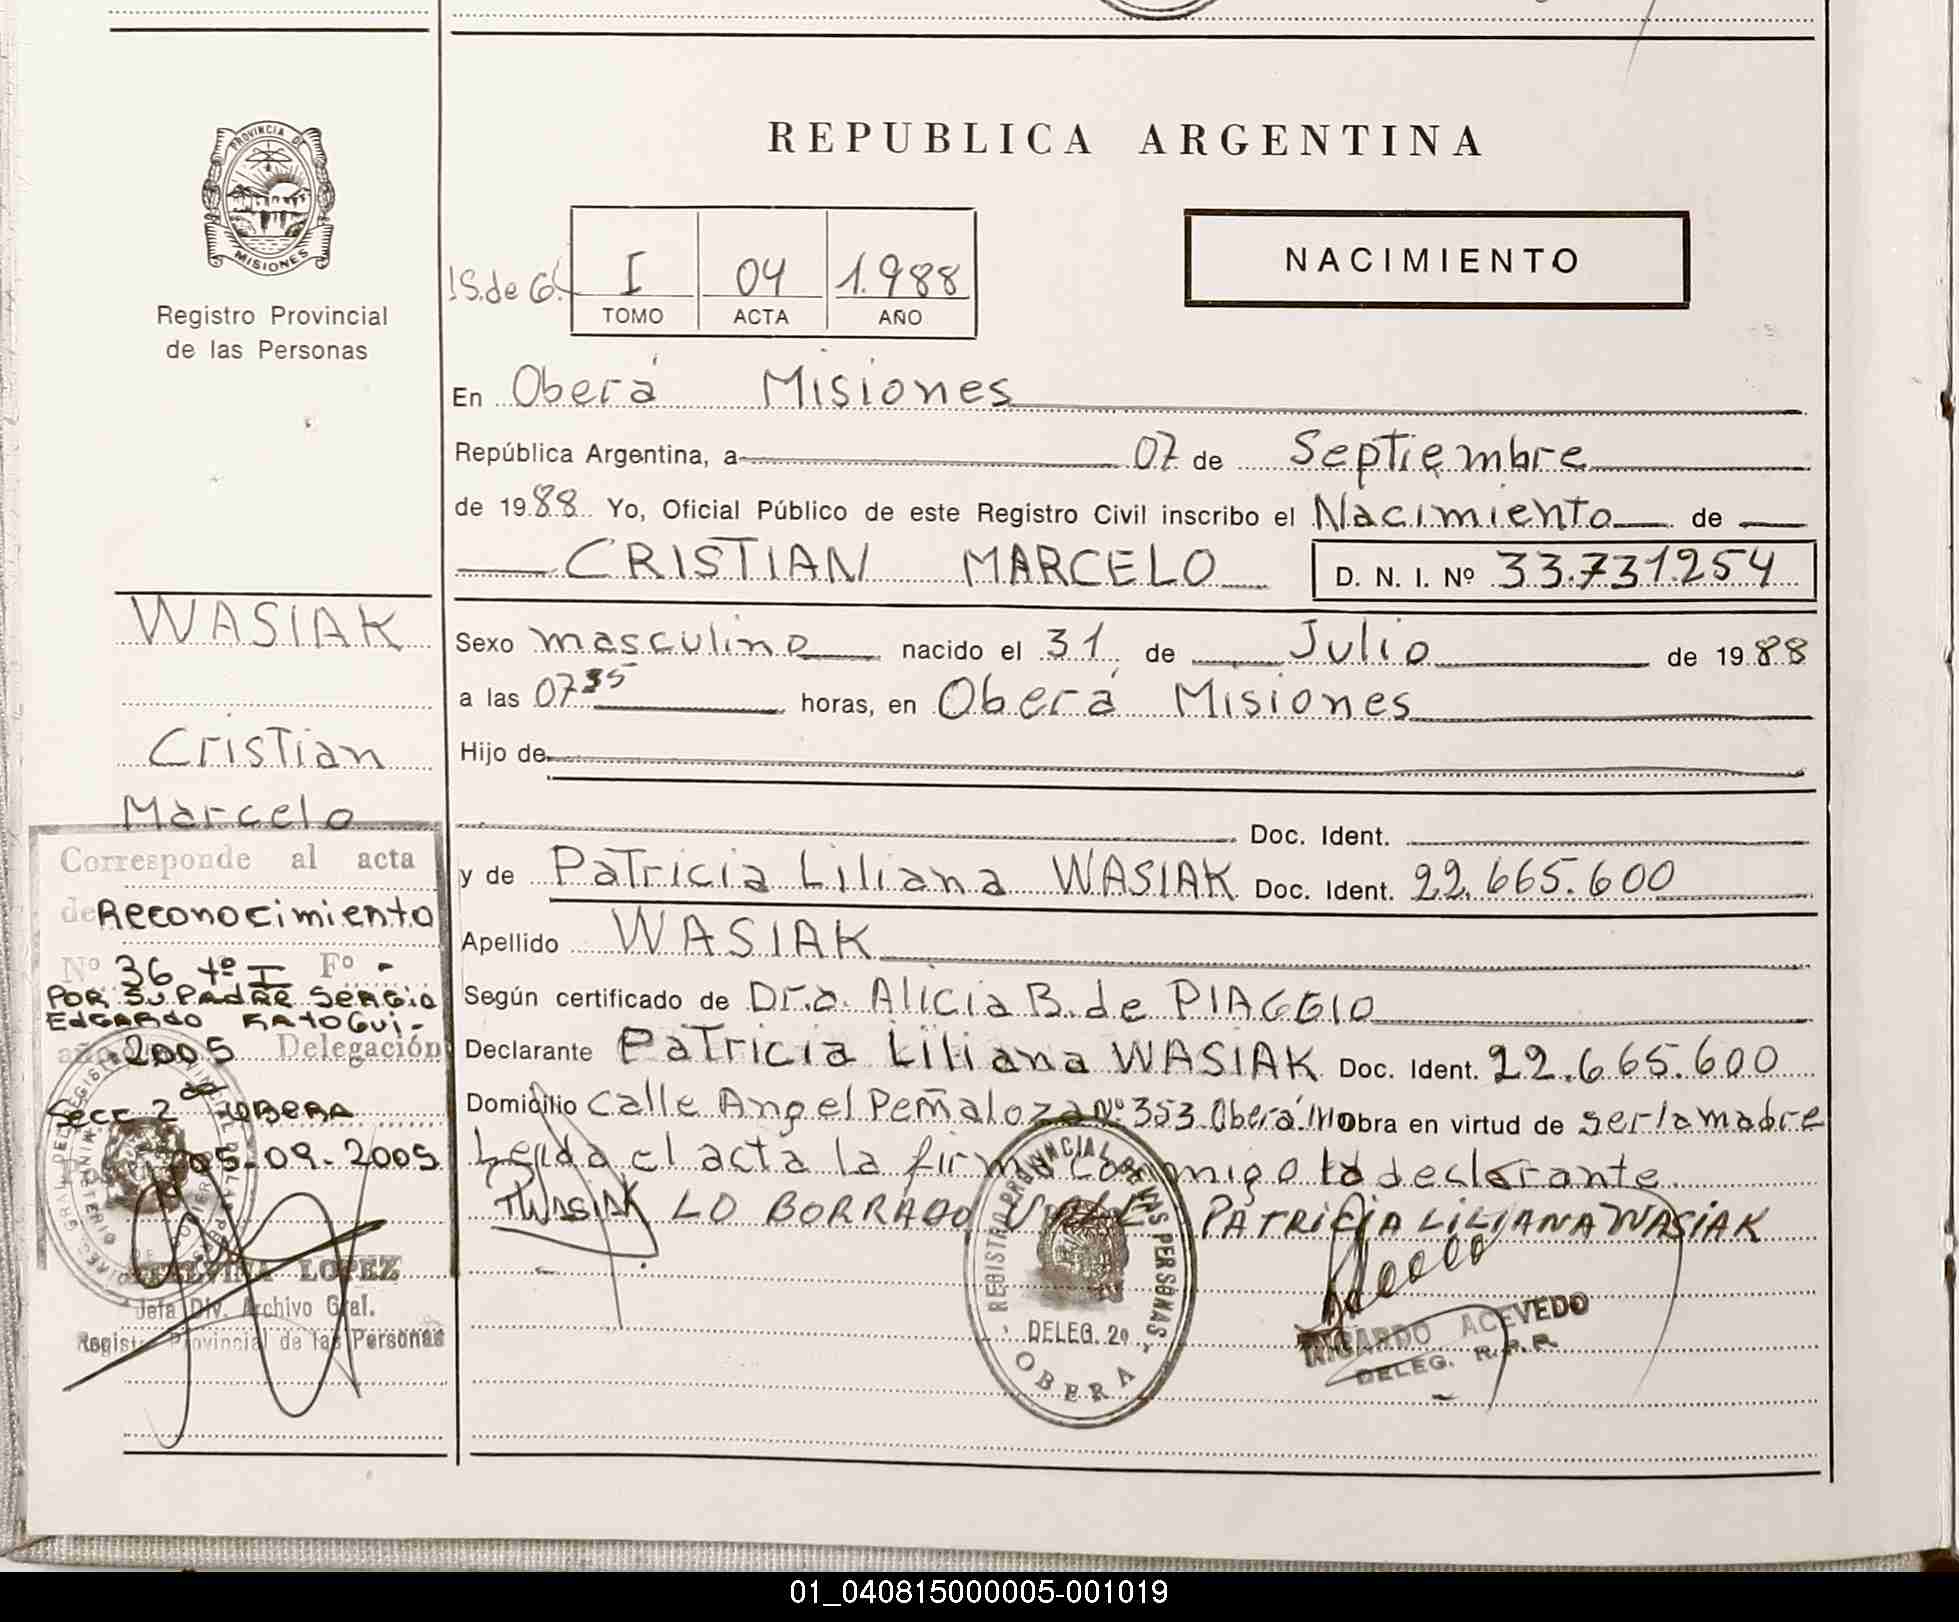 REPUBLICA ARGENTINA
PROVINCIA DE
MISIONES
Registro Provincial
de las Personas
NACIMIENTO
I 04 1.988
TOMO ACTA AÑO
En Oberá Misiones
República Argentina, a 07 de Septiembre
de 1988 Yo, Oficial Público de este Registro Civil inscribo el Nacimiento de
CRISTIAN MARCELO D. N. I. Nº 33.731.254
Sexo masculino nacido el 31 de Julio de 1988
a las 07 35 horas, en Oberá Misiones
Hijo de
Doc. Ident.
y de Patricia Liliana WASIAK Doc. Ident. 22.665.600
Apellido WASIAK
Según certificado de Dra. Alicia B. de PIAGGIO
Declarante Patricia Liliana WASIAK Doc. Ident. 22.665.600
Domicilio Calle Angel Peñaloza Nº 353 Oberá obra en virtud de ser la madre
Leída el acta la firma conmigo la declarante
PWasiak LO BORRADO VALE PATRICIA LILIANA WASIAK
REGISTRO PROVINCIAL DE LAS PERSONAS
DELEG. 2º
OBERA
RICARDO ACEVEDO
DELEG. R.P.P.
WASIAK
Cristian
Marcelo
Corresponde al acta
de Reconocimiento
Nº 36 tº I Fº -
POR SU PADRE SERGIO
EDGARDO KATOGUI-
año 2005 Delegación
Secc 2da OBERA
05-09-2005
LOPEZ
Jefa Div. Archivo Gral.
Registro Provincial de las Personas
01_040815000005-001019